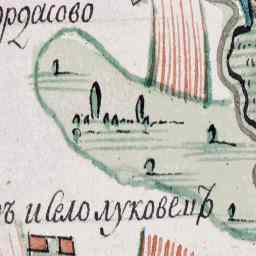 ордасово
ъ исело луковецъ